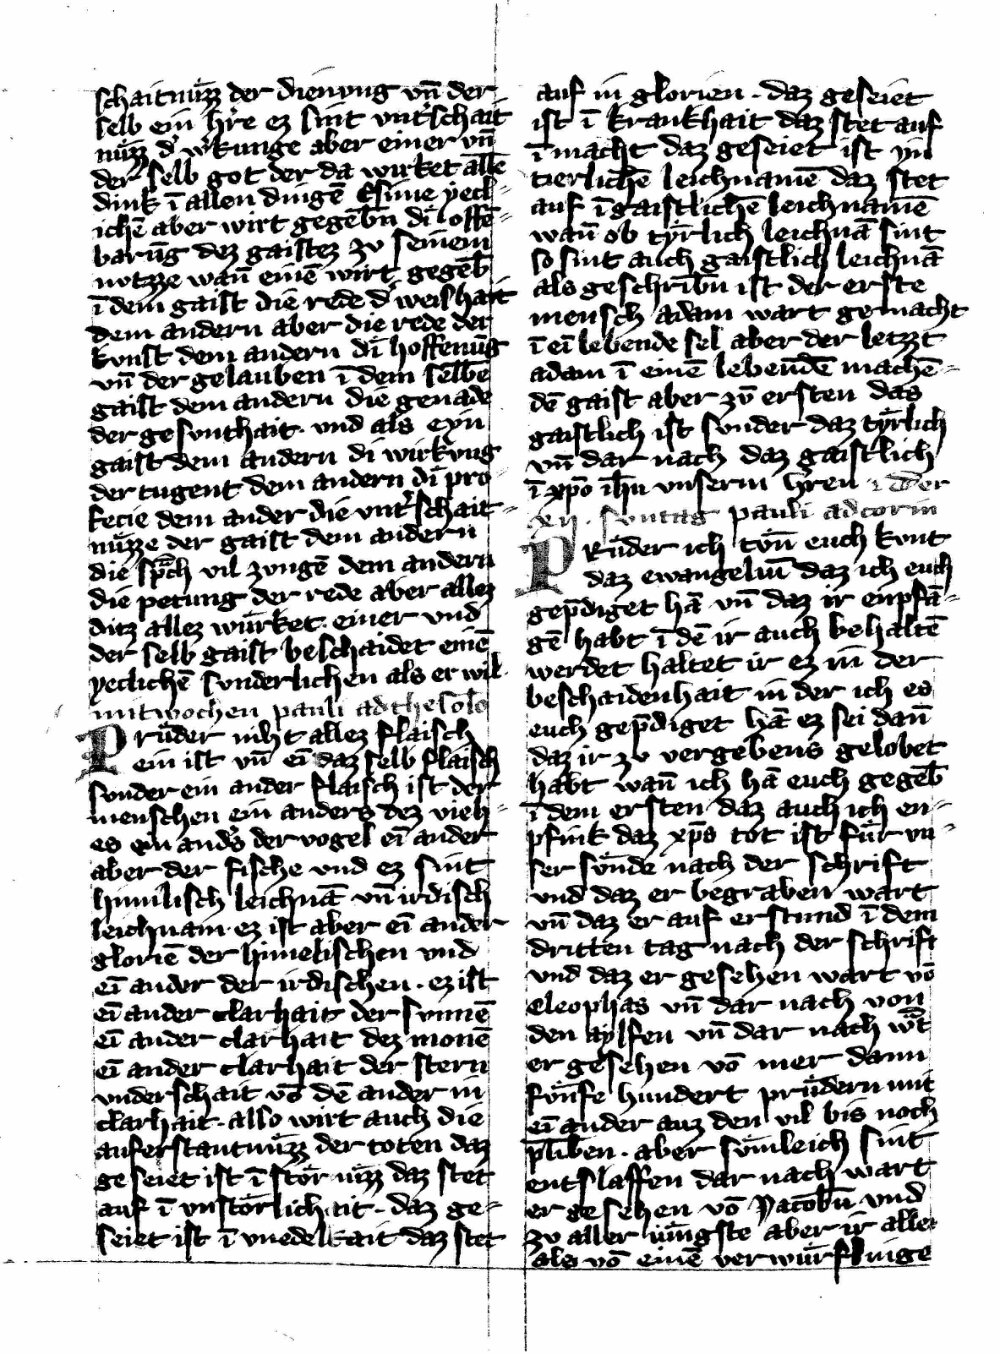 schaitnuͤzz der dienung vn̄ der
selb ein hr̄e ez sint vnt̾schait
nuͤzz d̾ w̾kunge aber einer vn̄
der selb got der da wirket alle
dink ī allen dingē Esime yecl-
ichē aber wirt gegēbn̄ di offē-
barūg dez gaistez zv seinem
notzze wan̄ einē wirt gegēb̄
ī dem gaist die rede d̾ weishait
dem andern aber die rede der
kvnst dem andern di hoffenūg
vn̄ der gelauben ī dem selbē
gaist dem andern die genade
der gesvnthait · vnd als eyn
gaist dem andern di wirkvng
der tugent dem andern di pro-
fecie dem ander die vnt̾schait-
nuͤzze der gaist dem andern
die sp̄ch vil zvngē dem andern
die petung der rede aber allez
ditz allez wuͤrket · einer vnd
der selb gaist beschaidet einē
yeclichē svnderlichen als er wil ·
mitwochen pauli ad thesolo
Pruͤder niht allez flaisch
ein ist vn̄ eī daz selb flaisch
svnder ein ander flaisch ist der
menschen ein anders dez vieh-
es ein and̾s der vogel eī ander
aber der fische vnd ez sint
himilisch leichnā vn̄ irdisch
leichnam · ez ist aber eī ander
gloriē der himelischen vnd
eī ander der irdischen · ez ist
eī ander clarhait der svnnē
eī ander clarhait dez monē
eī ander clarhait der stern
vnderschait vō dē ander in
clarhait · also wirt auch die
auferstantnuͤzz der toten daz
geseiet ist ī stoͤrnuͤzz daz stet
auf ī vnstoͤrlichait · daz ge-
seiet ist ī vnedelkait daz stet
auf in glorien · daz geseiet
ist ī krankhait daz stet auf
ī macht daz geseiet ist yn
tierlichē leichnamē daz stet
auf ī gaistlichē leichnamē
wan̄ ob tyͤrlich leichnā sint
so sint auch gaistlich leichnā
als geschribn̄ ist der erste
mensch adam wart gemacht
ī eī lebende sel aber der letzt
adam ī einē lebendē machē-
dē gaist aber zv̄ ersten das
gaistlich ist svnder daz tyͤrlich
vn̄ dar nach daz gaistlich
ī xp̄o ih̄u vnserm hr̄en
xij · svntag pauli ad corin
Pruͤder ich tvͦn euch kvnt
daz ewangeliū daz ich euch
gep̄diget hā vn̄ daz ir enpfā-
gē habt ī dē ir auch behaltē
werdet haltet ir ez in der
beschaidenhait in der ich es
euch gep̄diget hā ez sei dan̄
daz ir zv vergebens gelobet
habt wan̄ ich hā euch gegēb̄
ī dem ersten daz auch ich en-
pfink daz xp̄s tot ist fuͤr vn-
ser svͤnde nach der schrift
vnd daz er begraben wart
vn̄ daz er auf erstund ī dem
dritten tag nach der schrift
vnd daz er gesehen wart vō
cleophas vn̄ dar nach von
den aylfen vn̄ dar nach w̄t
er gesehen vō mer dann
fvͤnfe hundert pruͤdern mit
eī ander auz den vil bis noch
plibē · aber svͤmleich sint
entslaffen dar nach wart
er gesehen vō Jacobn̄ vnd
zv aller iuͤngste aber ir aller
als vō einē verwuͤrflinge